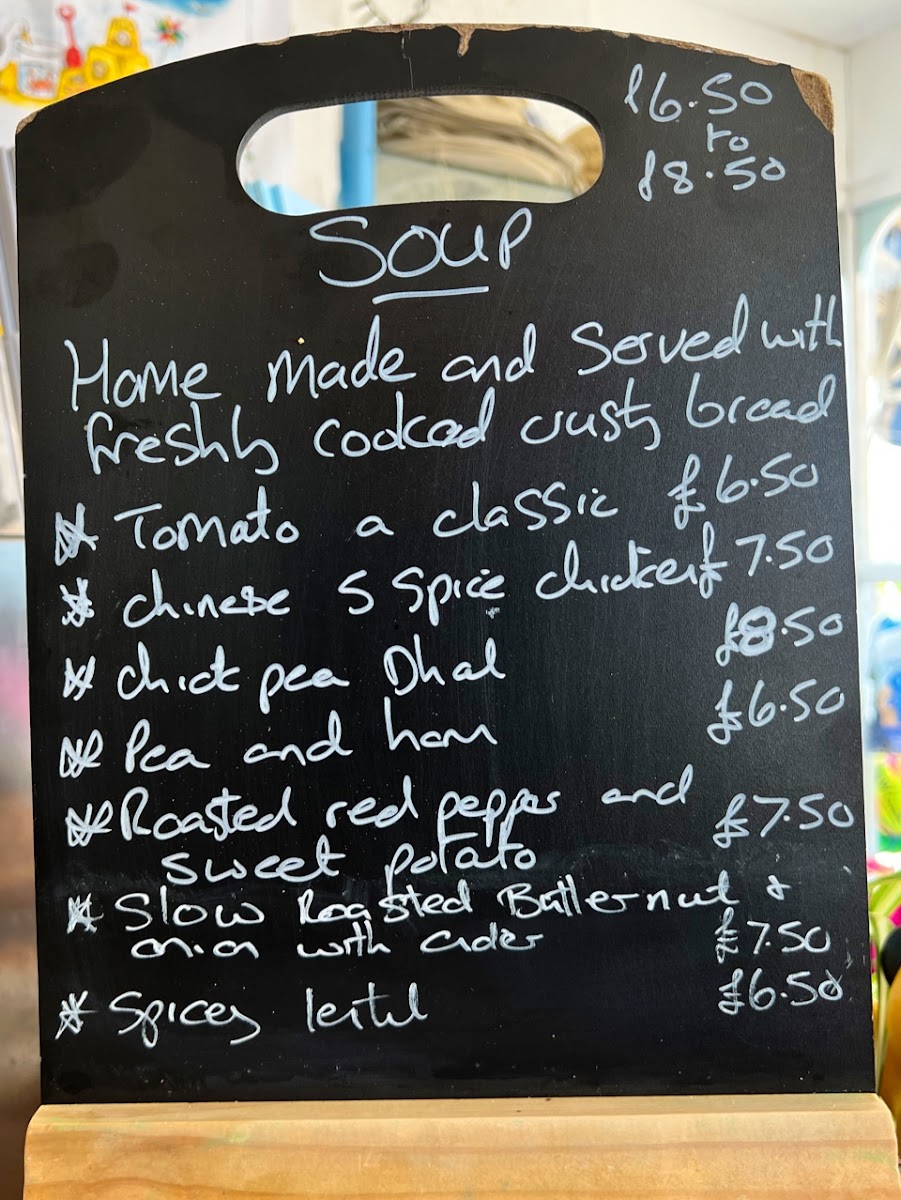 £6.50
to
£8.50
SOUP
Home made and Served with
freshly cooked crusty bread
* Tomato a classic £6.50
* chinese 5 Spice chicken £7.50
* chick pea Dhal £8.50
* Pea and ham £6.50
* Roasted red pepper and
sweet potato £7.50
* Slow Roasted Butternut &
onion with cider £7.50
* Spicey lentil £6.50